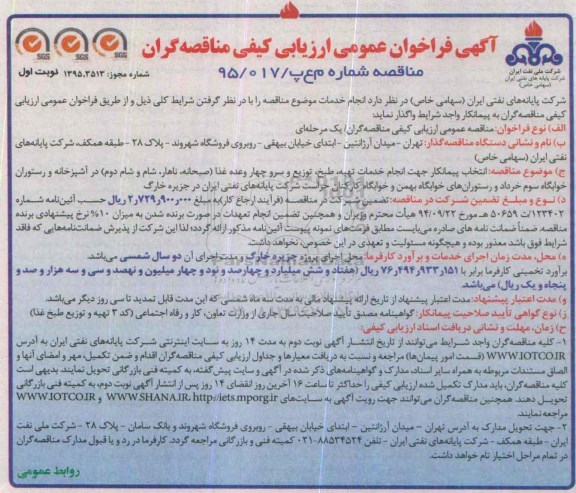 آگهی فراخوان عمومی ارزیابی کیفی مناقصه‌گران
مناقصه شماره م‌ع‌پ/۹۵/۰۱۷
شماره مجوز: ۱۳۹۵.۳۵۱۳
نوبت اول
شرکت ملی نفت ایران
شرکت پایانه های نفتی ایران
(سهامی خاص)
SGS SGS SGS
شرکت پایانه‌های نفتی ایران (سهامی خاص) در نظر دارد انجام خدمات موضوع مناقصه را با در نظر گرفتن شرایط کلی ذیل و از طریق فراخوان عمومی ارزیابی
کیفی مناقصه‌گران به پیمانکار واجد شرایط واگذار نماید:
الف) نوع فراخوان: مناقصه عمومی ارزیابی کیفی مناقصه‌گران/ یک مرحله‌ای
ب) نام و نشانی دستگاه مناقصه‌گذار: تهران - میدان آرژانتین - ابتدای خیابان بیهقی - روبروی فروشگاه شهروند - پلاک ۲۸ - طبقه همکف، شرکت پایانه‌های
نفتی ایران (سهامی خاص)
ج) موضوع مناقصه: انتخاب پیمانکار جهت انجام خدمات تهیه، طبخ، توزیع و سرو چهار وعده غذا (صبحانه، ناهار، شام و شام دوم) در آشپزخانه و رستوران
خوابگاه سوم خرداد و رستوران‌های خوابگاه بهمن و خوابگاه کارکنان حراست شرکت پایانه‌های نفتی ایران در جزیره خارگ
د) نوع و مبلغ تضمین شرکت در مناقصه: تضمین شرکت در مناقصه (فرآیند ارجاع کار) به مبلغ ۲٫۷۲۹٫۹۰۰٫۰۰۰ ریال حسب آئین‌نامه شماره
۱۲۳۴۰۲/ت ۵۰۶۵۹ هـ مورخ ۹۴/۰۹/۲۲ هیأت محترم وزیران و همچنین تضمین انجام تعهدات در صورت برنده شدن به میزان ۱۰% نرخ پیشنهادی برنده
مناقصه ضمناً ضمانت نامه های صادره می‌بایست مطابق فرمت‌های نمونه پیوست آئین‌نامه مذکور ارائه گردد؛ لذا این شرکت از پذیرش ضمانت‌نامه‌هایی که فاقد
شرایط فوق باشد معذور بوده و هیچگونه مسئولیت و تعهدی در این خصوص، نخواهد داشت.
ه) محل، مدت زمان اجرای خدمات و برآورد کارفرما: محل اجرای پروژه جزیره خارگ و مدت اجرای آن دو سال شمسی می‌باشد.
برآورد تخمینی کارفرما برابر با ۷۶٫۴۹۴٫۹۳۳٫۱۵۱ ریال (هفتاد و شش میلیارد و چهارصد و نود و چهار میلیون و نهصد و سی و سه هزار و صد و
پنجاه و یک ریال) می‌باشد.
و) مدت اعتبار پیشنهاد: مدت اعتبار پیشنهاد از تاریخ ارائه پیشنهاد مالی به مدت سه ماه شمسی که این مدت قابل تمدید تا سی روز دیگر می‌باشد.
ز) نوع گواهی تأیید صلاحیت پیمانکار: گواهینامه مصدق تأیید صلاحیت سال جاری از وزارت تعاون، کار و رفاه اجتماعی (کد ۳ تهیه و توزیع طبخ غذا)
ح) زمان، مهلت و نشانی دریافت اسناد ارزیابی کیفی:
۱- کلیه مناقصه‌گران واجد شرایط می‌توانند از تاریخ انتشار آگهی نوبت دوم به مدت ۱۴ روز به سایت اینترنتی شرکت پایانه‌های نفتی ایران به آدرس
WWW.IOTCO.IR (قسمت امور پیمان‌ها) مراجعه و نسبت به دریافت معیارها و جداول ارزیابی کیفی مناقصه‌گران اقدام و ضمن تکمیل، مهر و امضای آنها و
الصاق مستندات مربوطه به همراه سایر اسناد، مدارک و گواهینامه‌های ذکر شده در آگهی و سایت پیش‌گفته، به کمیته فنی بازرگانی تحویل نمایند. بدیهی است
کلیه مناقصه‌گران، باید مدارک تکمیل شده ارزیابی کیفی را حداکثر تا ساعت ۱۶ آخرین روز انقضای ۱۴ روز پس از انتشار آگهی نوبت دوم، به کمیته فنی بازرگانی
تحویل دهند. همچنین مناقصه‌گران می‌توانند جهت رویت آگهی به سایت‌های WWW.SHANA.IR، http://iets.mporg.ir و WWW.IOTCO.IR
مراجعه نمایند.
۲- جهت تحویل مدارک به آدرس تهران - میدان آرژانتین - ابتدای خیابان بیهقی - روبروی فروشگاه شهروند و بانک سامان - پلاک ۲۸ - شرکت ملی نفت
ایران - طبقه همکف - شرکت پایانه‌های نفتی ایران - تلفن ۸۸۵۳۴۵۲۴-۰۲۱ کمیته فنی و بازرگانی مراجعه گردد. کارفرما در رد و یا قبول مدارک مناقصه‌گران
در تمام مراحل اختیار تام خواهد داشت.
روابط عمومی